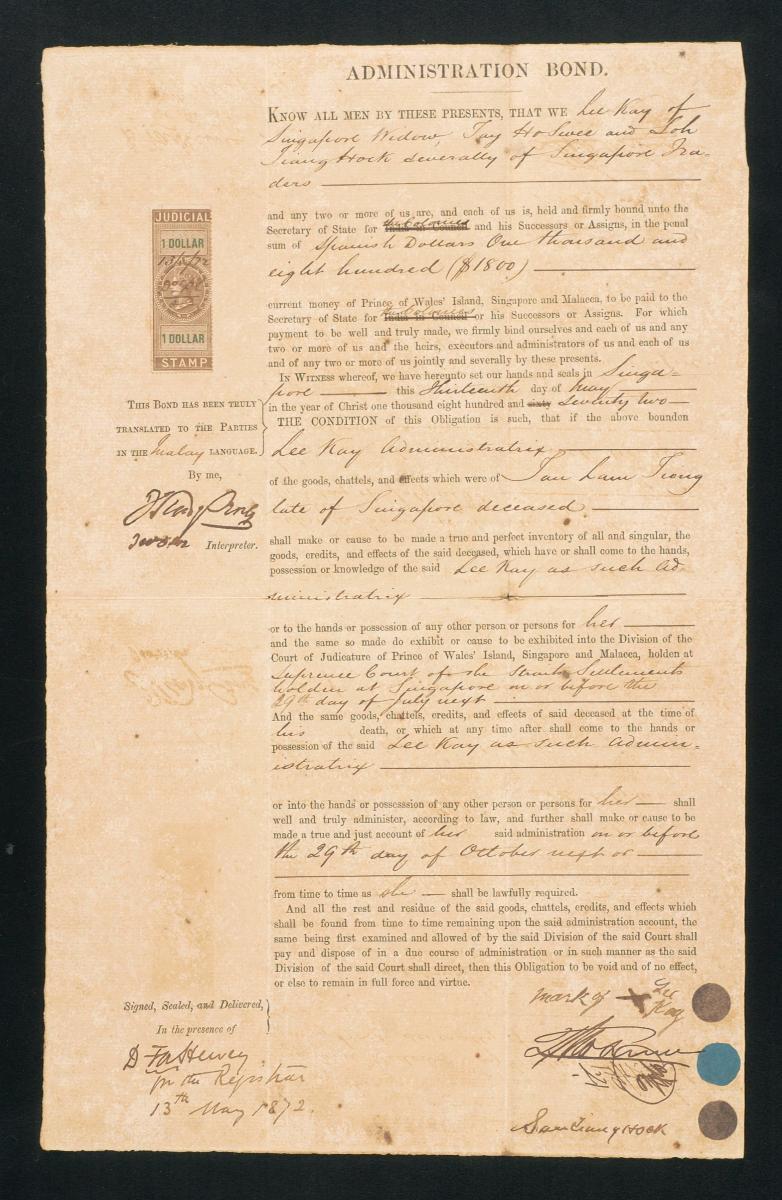 ADMINISTRATION BOND.
KNOW ALL MEN BY THESE PRESENTS, THAT WE Lee Kay of
Singapore Widow, Tay Ho Swee and Loh
Tiang Hock severally of Singapore Tra-
ders
and any two or more of us are, and each of us is, held and firmly bound unto the
the Colonies
Secretary of State for India in Council and his Successors or Assigns, in the penal
sum of Spanish Dollars One thousand and
eight hundred ($1800)
current money of Prince of Wales' Island, Singapore and Malacca, to be paid to the
the Colonies
Secretary of State for India in Council or his Successors or Assigns. For which
payment to be well and truly made, we firmly bind ourselves and each of us and any
two or more of us and the heirs, executors and administrators of us and each of us
and of any two or more of us jointly and severally by these presents.
IN WITNESS whereof, we have hereunto set our hands and seals in Singa-
pore this thirteenth day of May
in the year of Christ one thousand eight hundred and sixty seventy two
THE CONDITION of this Obligation is such, that if the above bounden
Lee Kay Administratrix
of the goods, chattels, and effects which were of Tan Lam Tiong
late of Singapore deceased
shall make or cause to be made a true and perfect inventory of all and singular, the
goods, credits, and effects of the said deceased, which have or shall come to the hands,
possession or knowledge of the said Lee Kay as such ad-
ministratrix
or to the hands or possession of any other person or persons for her
and the same so made do exhibit or cause to be exhibited into the Division of the
Court of Judicature of Prince of Wales' Island, Singapore and Malacca, holden at
Supreme Court of the Straits Settlements
holden at Singapore on or before the
29th day of July next
And the same goods, chattels, credits, and effects of said deceased at the time of
his death, or which at any time after shall come to the hands or
possession of the said Lee Kay as such admin-
istratrix
or into the hands or possesssion of any other person or persons for her shall
well and truly administer, according to law, and further shall make or cause to be
made a true and just account of her said administration on or before
the 29th day of October next or
from time to time as she shall be lawfully required.
And all the rest and residue of the said goods, chattels, credits, and effects which
shall be found from time to time remaining upon the said administration account, the
same being first examined and allowed of by the said Division of the said Court shall
pay and dispose of in a due course of administration or in such manner as the said
Division of the said Court shall direct, then this Obligation to be void and of no effect,
or else to remain in full force and virtue.
mark of X Lee
Kay
JUDICIAL
1 DOLLAR
13/5/72
1 DOLLAR
STAMP
THIS BOND HAS BEEN TRULY
TRANSLATED TO THE PARTIES
IN THE Malay LANGUAGE.
By me,
Interpreter.
Signed, Sealed, and Delivered,
In the presence of
for the Registrar
13th May 1872.